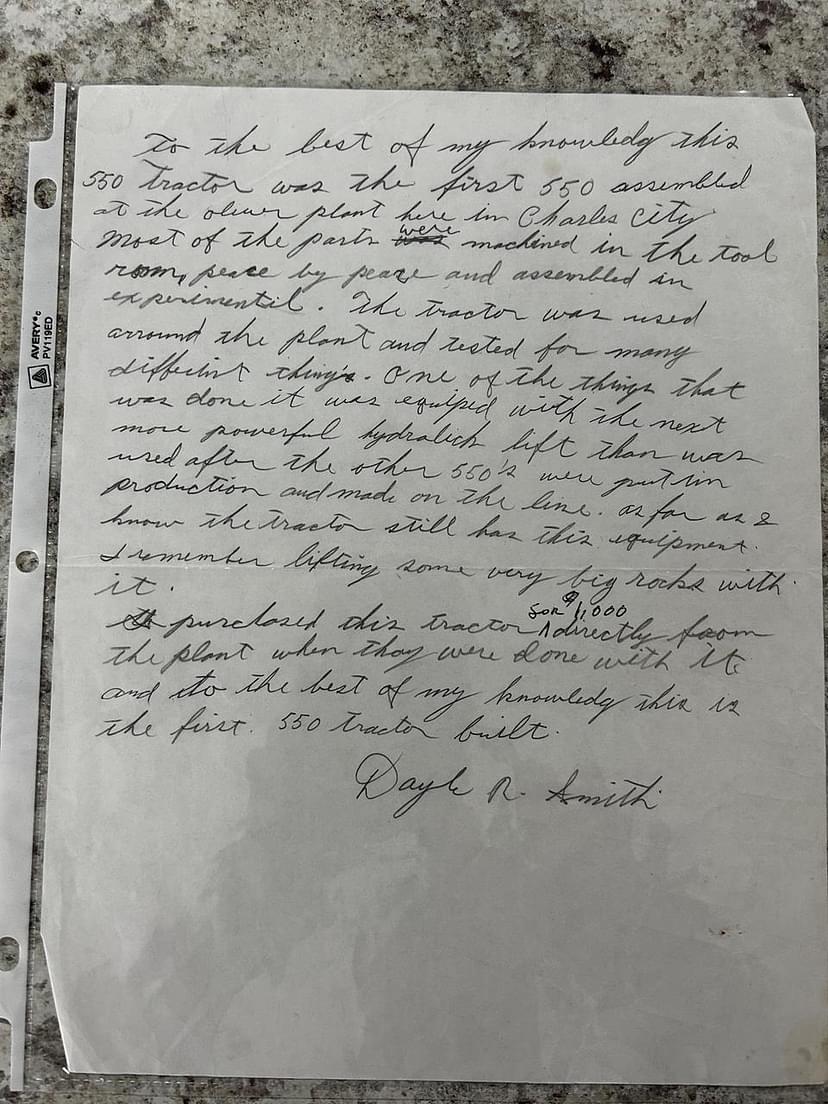 To the best of my knowledg this
550 tractor was the first 550 assembled
at the oliver plant here in Charles City
Most of the parts were machined in the tool
room, peace by peace and assembled in
experimentil. The tractor was used
arround the plant and tested for many
diffecint things. One of the things that
was done it was equiped with the next
more powerful hydralick lift than was
used after the other 550's were put in
production and made on the line. as far as I
know the tractor still has this equipment.
I remember lifting some very big rocks with
it.
for $1,000
purchased this tractor directly from
the plant when thay were done with it
and to the best of my knowledg this is
the first 550 tractor built.
Dayle R. Smith
AVERY
PV119ED